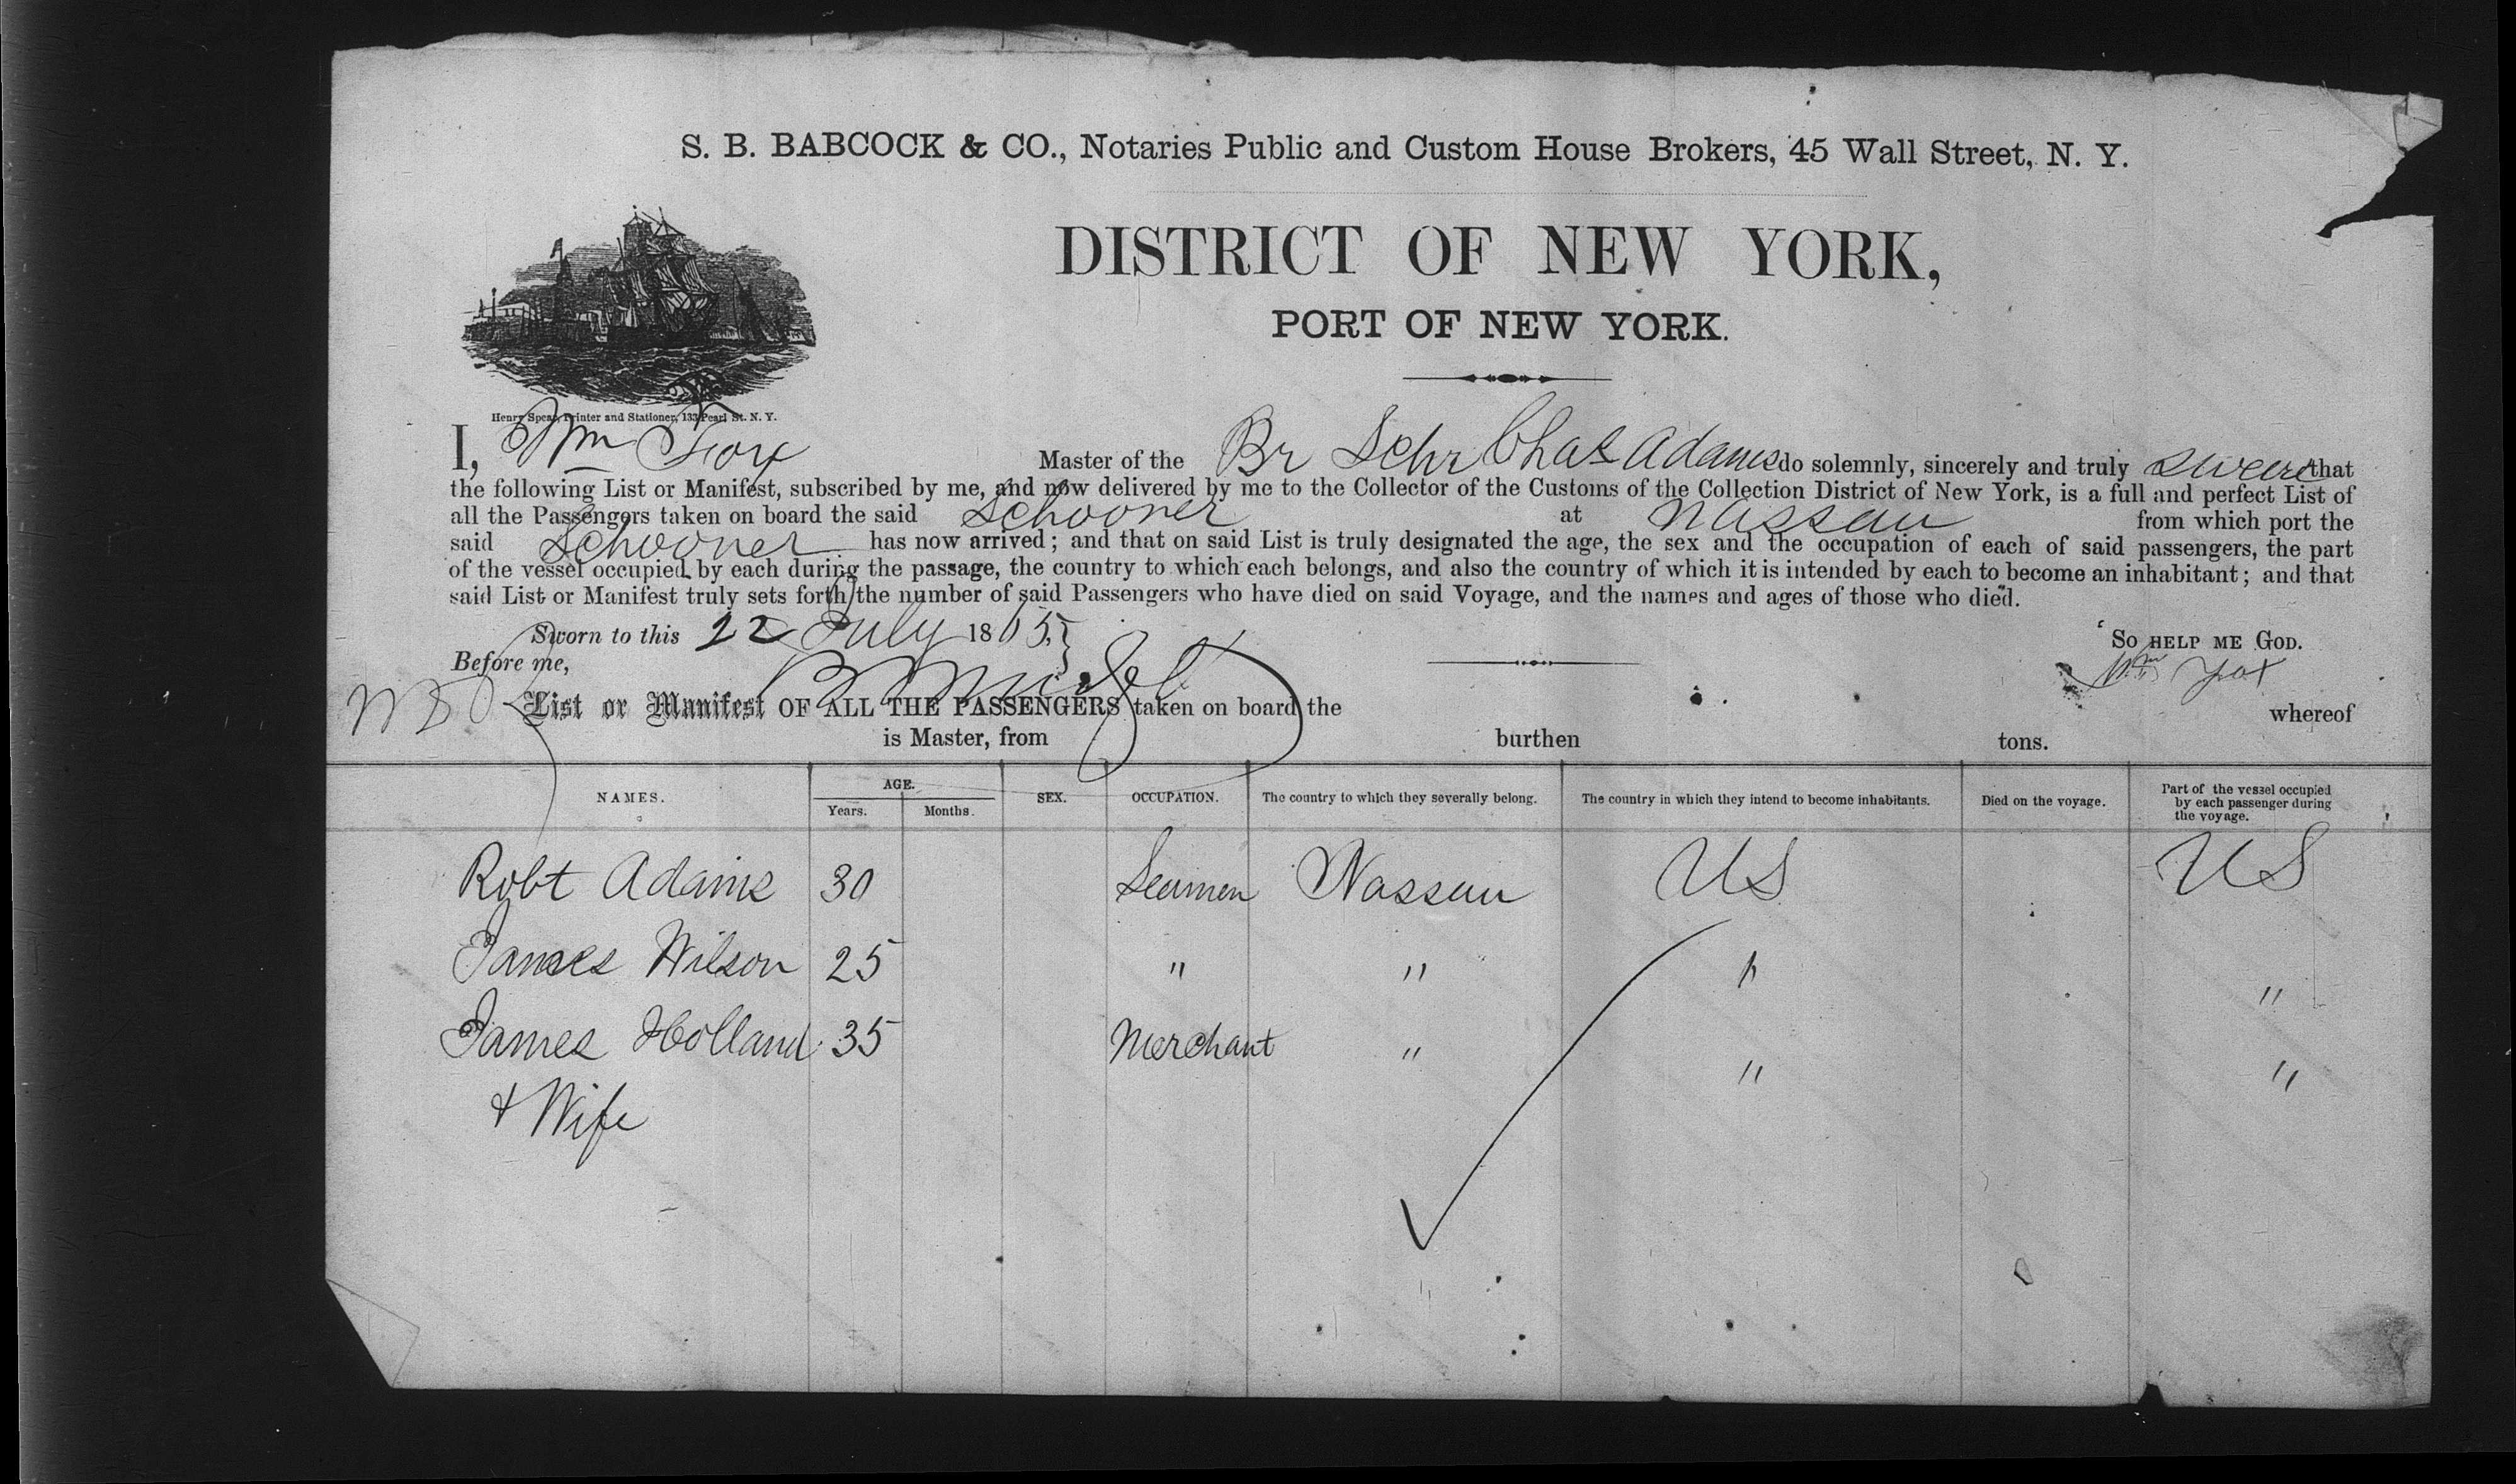 S. B. BABCOCK & CO., Notaries Public and Custom House Brokers, 45 Wall Street, N. Y.
DISTRICT OF NEW YORK,
PORT OF NEW YORK.
Henry Spear, Printer and Stationer, 133 Pearl St. N. Y.
I, Wm Fox Master of the Br Schr Chas Adams do solemnly, sincerely and truly swear that
the following List or Manifest, subscribed by me, and now delivered by me to the Collector of the Customs of the Collection District of New York, is a full and perfect List of
all the Passengers taken on board the said Schooner at Nassau from which port the
said Schooner has now arrived; and that on said List is truly designated the age, the sex and the occupation of each of said passengers, the part
of the vessel occupied by each during the passage, the country to which each belongs, and also the country of which it is intended by each to become an inhabitant; and that
said List or Manifest truly sets forth the number of said Passengers who have died on said Voyage, and the names and ages of those who died.
Sworn to this 22 July 1865 So help me God.
Before me, Wm Fox
List or Manifest OF ALL THE PASSENGERS taken on board the whereof
is Master, from burthen tons.
NAMES. AGE. Years. Months. SEX. OCCUPATION. The country to which they severally belong. The country in which they intend to become inhabitants. Died on the voyage. Part of the vessel occupied by each passenger during the voyage.
Robt Adams 30 Seamen Nassau US US
James Wilson 25 " " " "
James Holland 35 Merchant " " "
& Wife